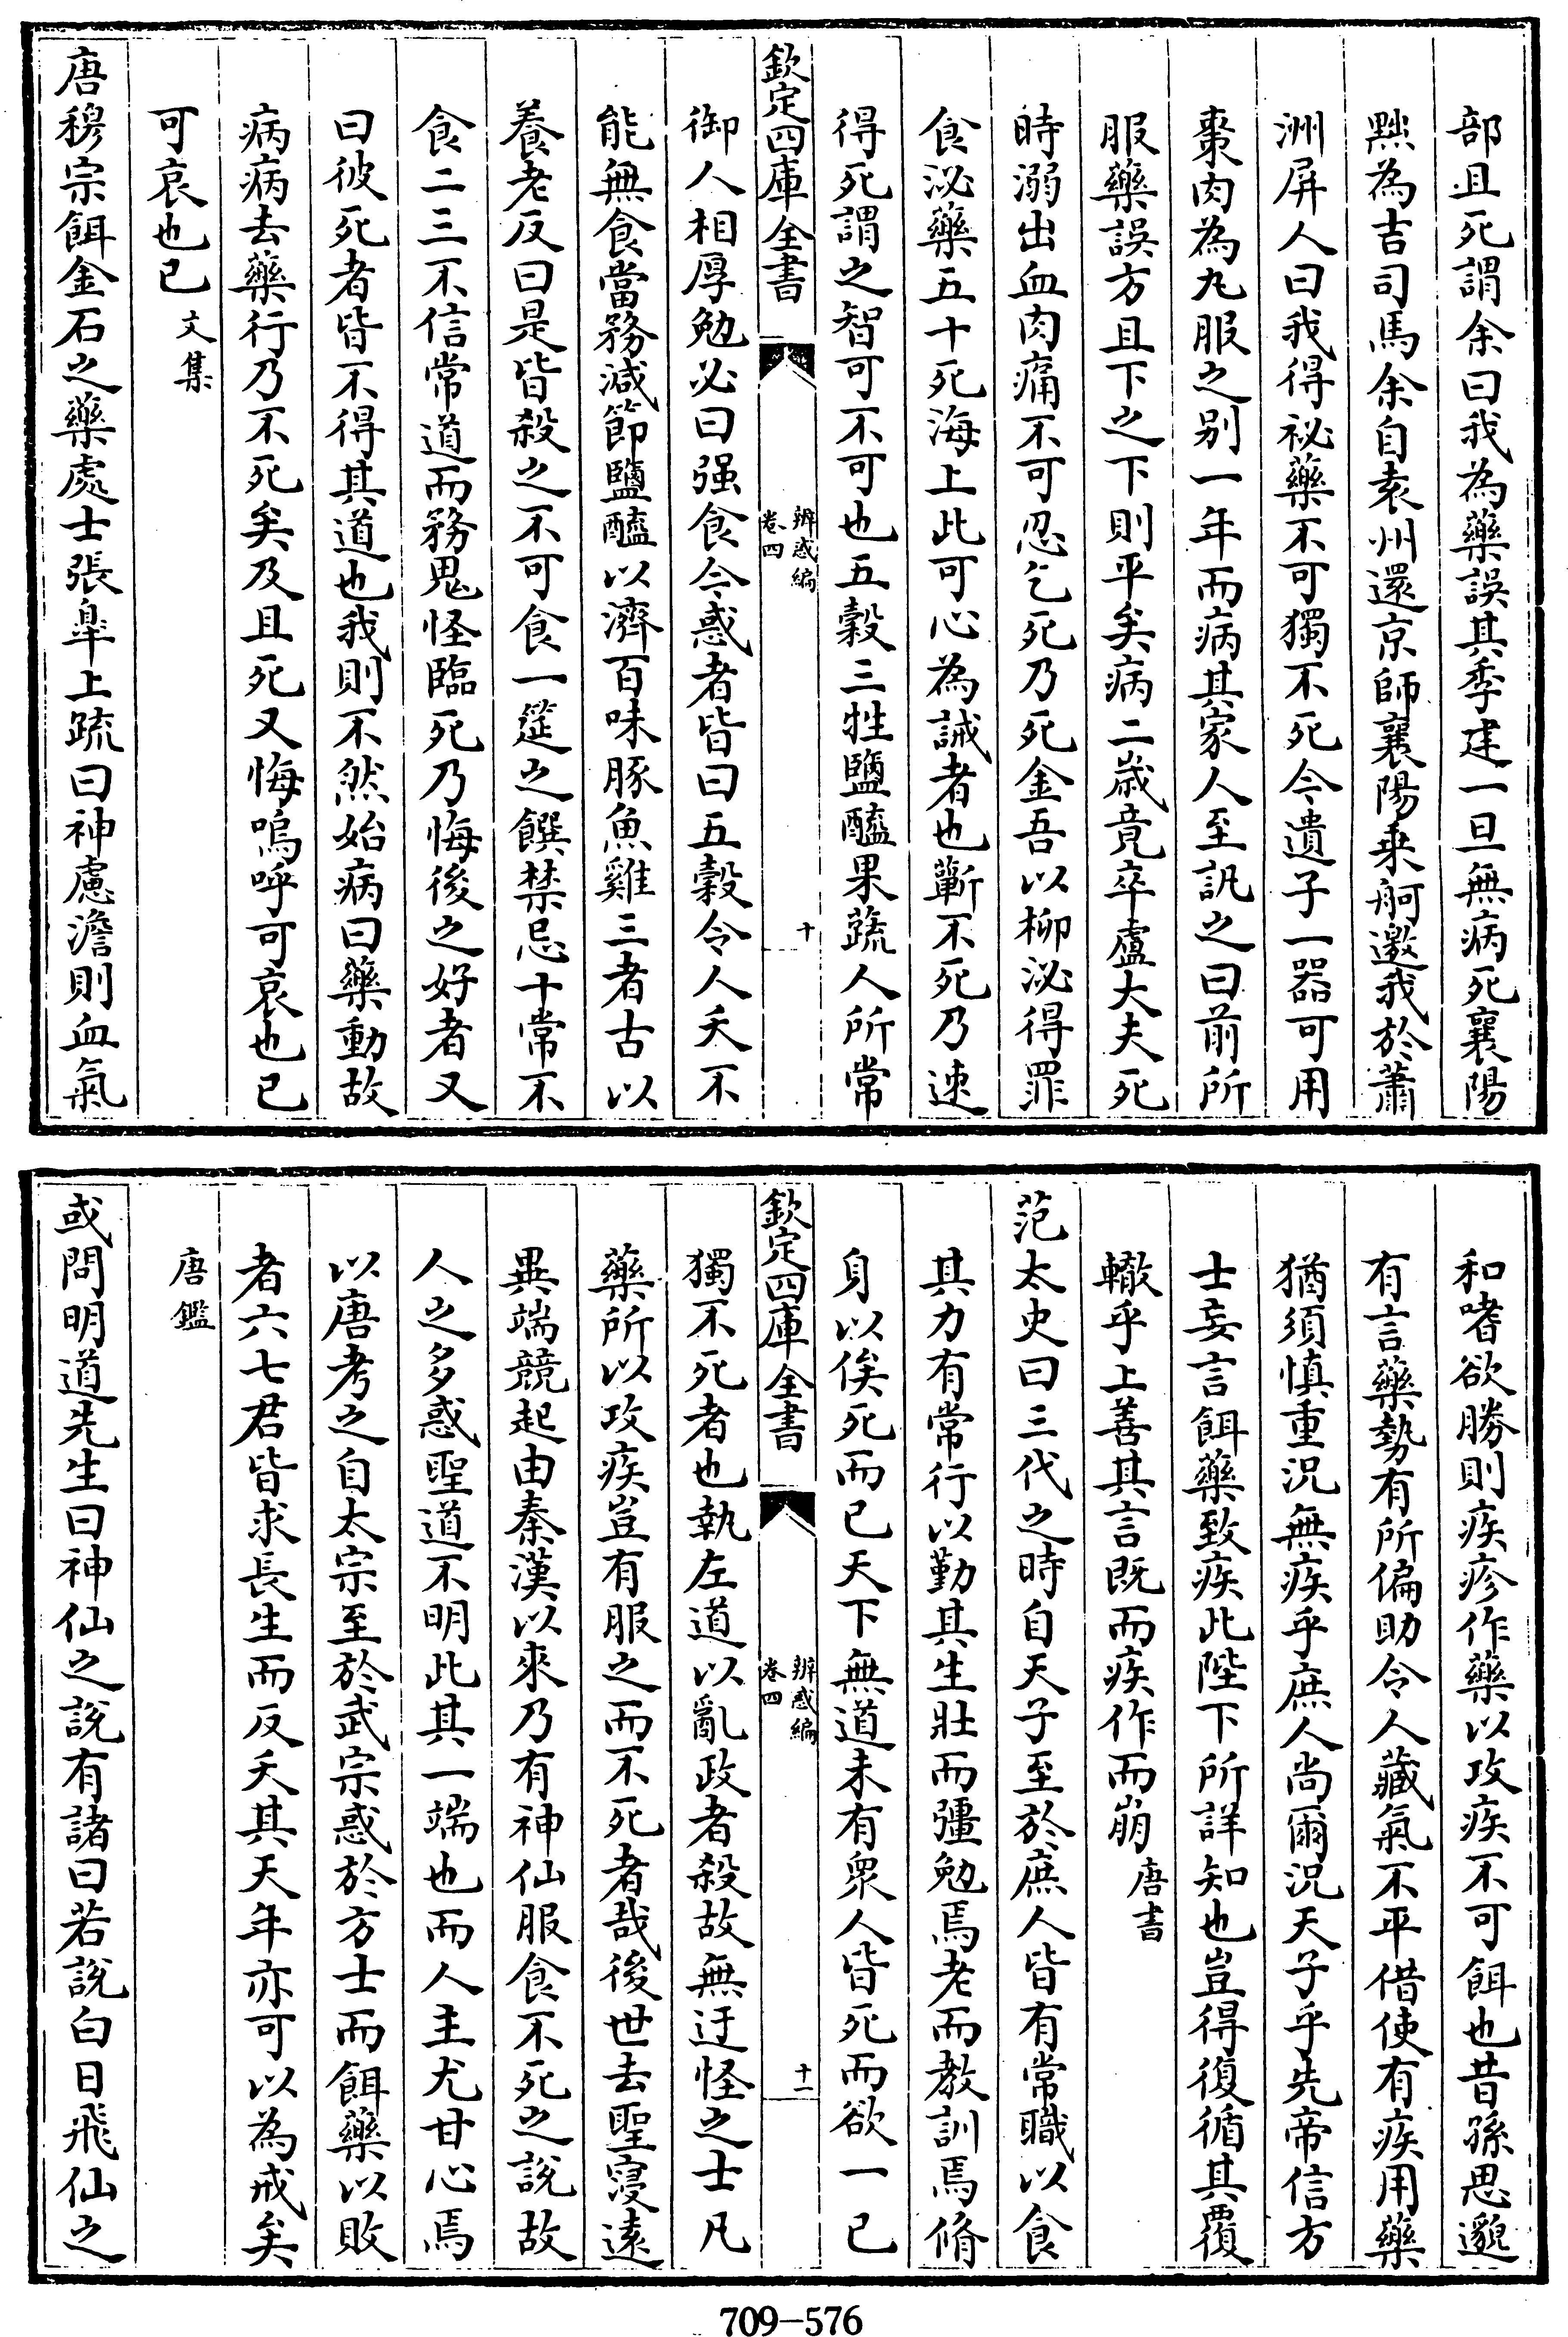 部且死謂余曰我為藥誤其季建一旦無病死襄陽
黜為吉司馬余自袁州還京師襄陽乗舸邀我於蕭
洲屏人曰我得祕藥不可獨不死今遺子一器可用
棗肉為丸服之别一年而病其家人至訊之曰前所
服藥誤方且下之下則平矣病二歳竟卒盧大夫死
時溺出血肉痛不可忍乞死乃死金吾以柳泌得罪
食泌藥五十死海上此可心為誡者也蘄不死乃速
得死謂之智可不可也五穀三牲鹽醯果蔬人所常
欽定四庫全書
辨惑編
卷四
十
御人相厚勉必曰强食今惑者皆曰五穀令人夭不
能無食當務減節鹽醯以濟百味豚魚雞三者古以
養老反曰是皆殺之不可食一筵之饌禁忌十常不
食二三不信常道而務鬼怪臨死乃悔後之好者又
曰彼死者皆不得其道也我則不然始病曰藥動故
病病去藥行乃不死矣及且死又悔嗚呼可哀也已
可哀也已 文集
唐穆宗餌金石之藥處士張臯上疏曰神慮澹則血氣
和嗜欲勝則疾疹作藥以攻疾不可餌也昔孫思邈
有言藥勢有所偏助令人藏氣不平借使有疾用藥
猶須慎重况無疾乎庶人尚爾况天子乎先帝信方
士妄言餌藥致疾此陛下所詳知也豈得復循其覆
轍乎上善其言既而疾作而崩 唐書
范太史曰三代之時自天子至於庶人皆有常職以食
其力有常行以勤其生壯而彊勉焉老而教訓焉脩
身以俟死而已天下無道未有衆人皆死而欲一已
欽定四庫全書
辨惑編
卷四
十一
獨不死者也執左道以亂政者殺故無迂怪之士凡
藥所以攻疾豈有服之而不死者哉後世去聖寖遠
異端競起由秦漢以來乃有神仙服食不死之說故
人之多惑聖道不明此其一端也而人主尤甘心焉
以唐考之自太宗至於武宗惑於方士而餌藥以敗
者六七君皆求長生而反夭其天年亦可以為戒矣
唐鑑
或問明道先生曰神仙之說有諸曰若說白日飛仙之
709-576